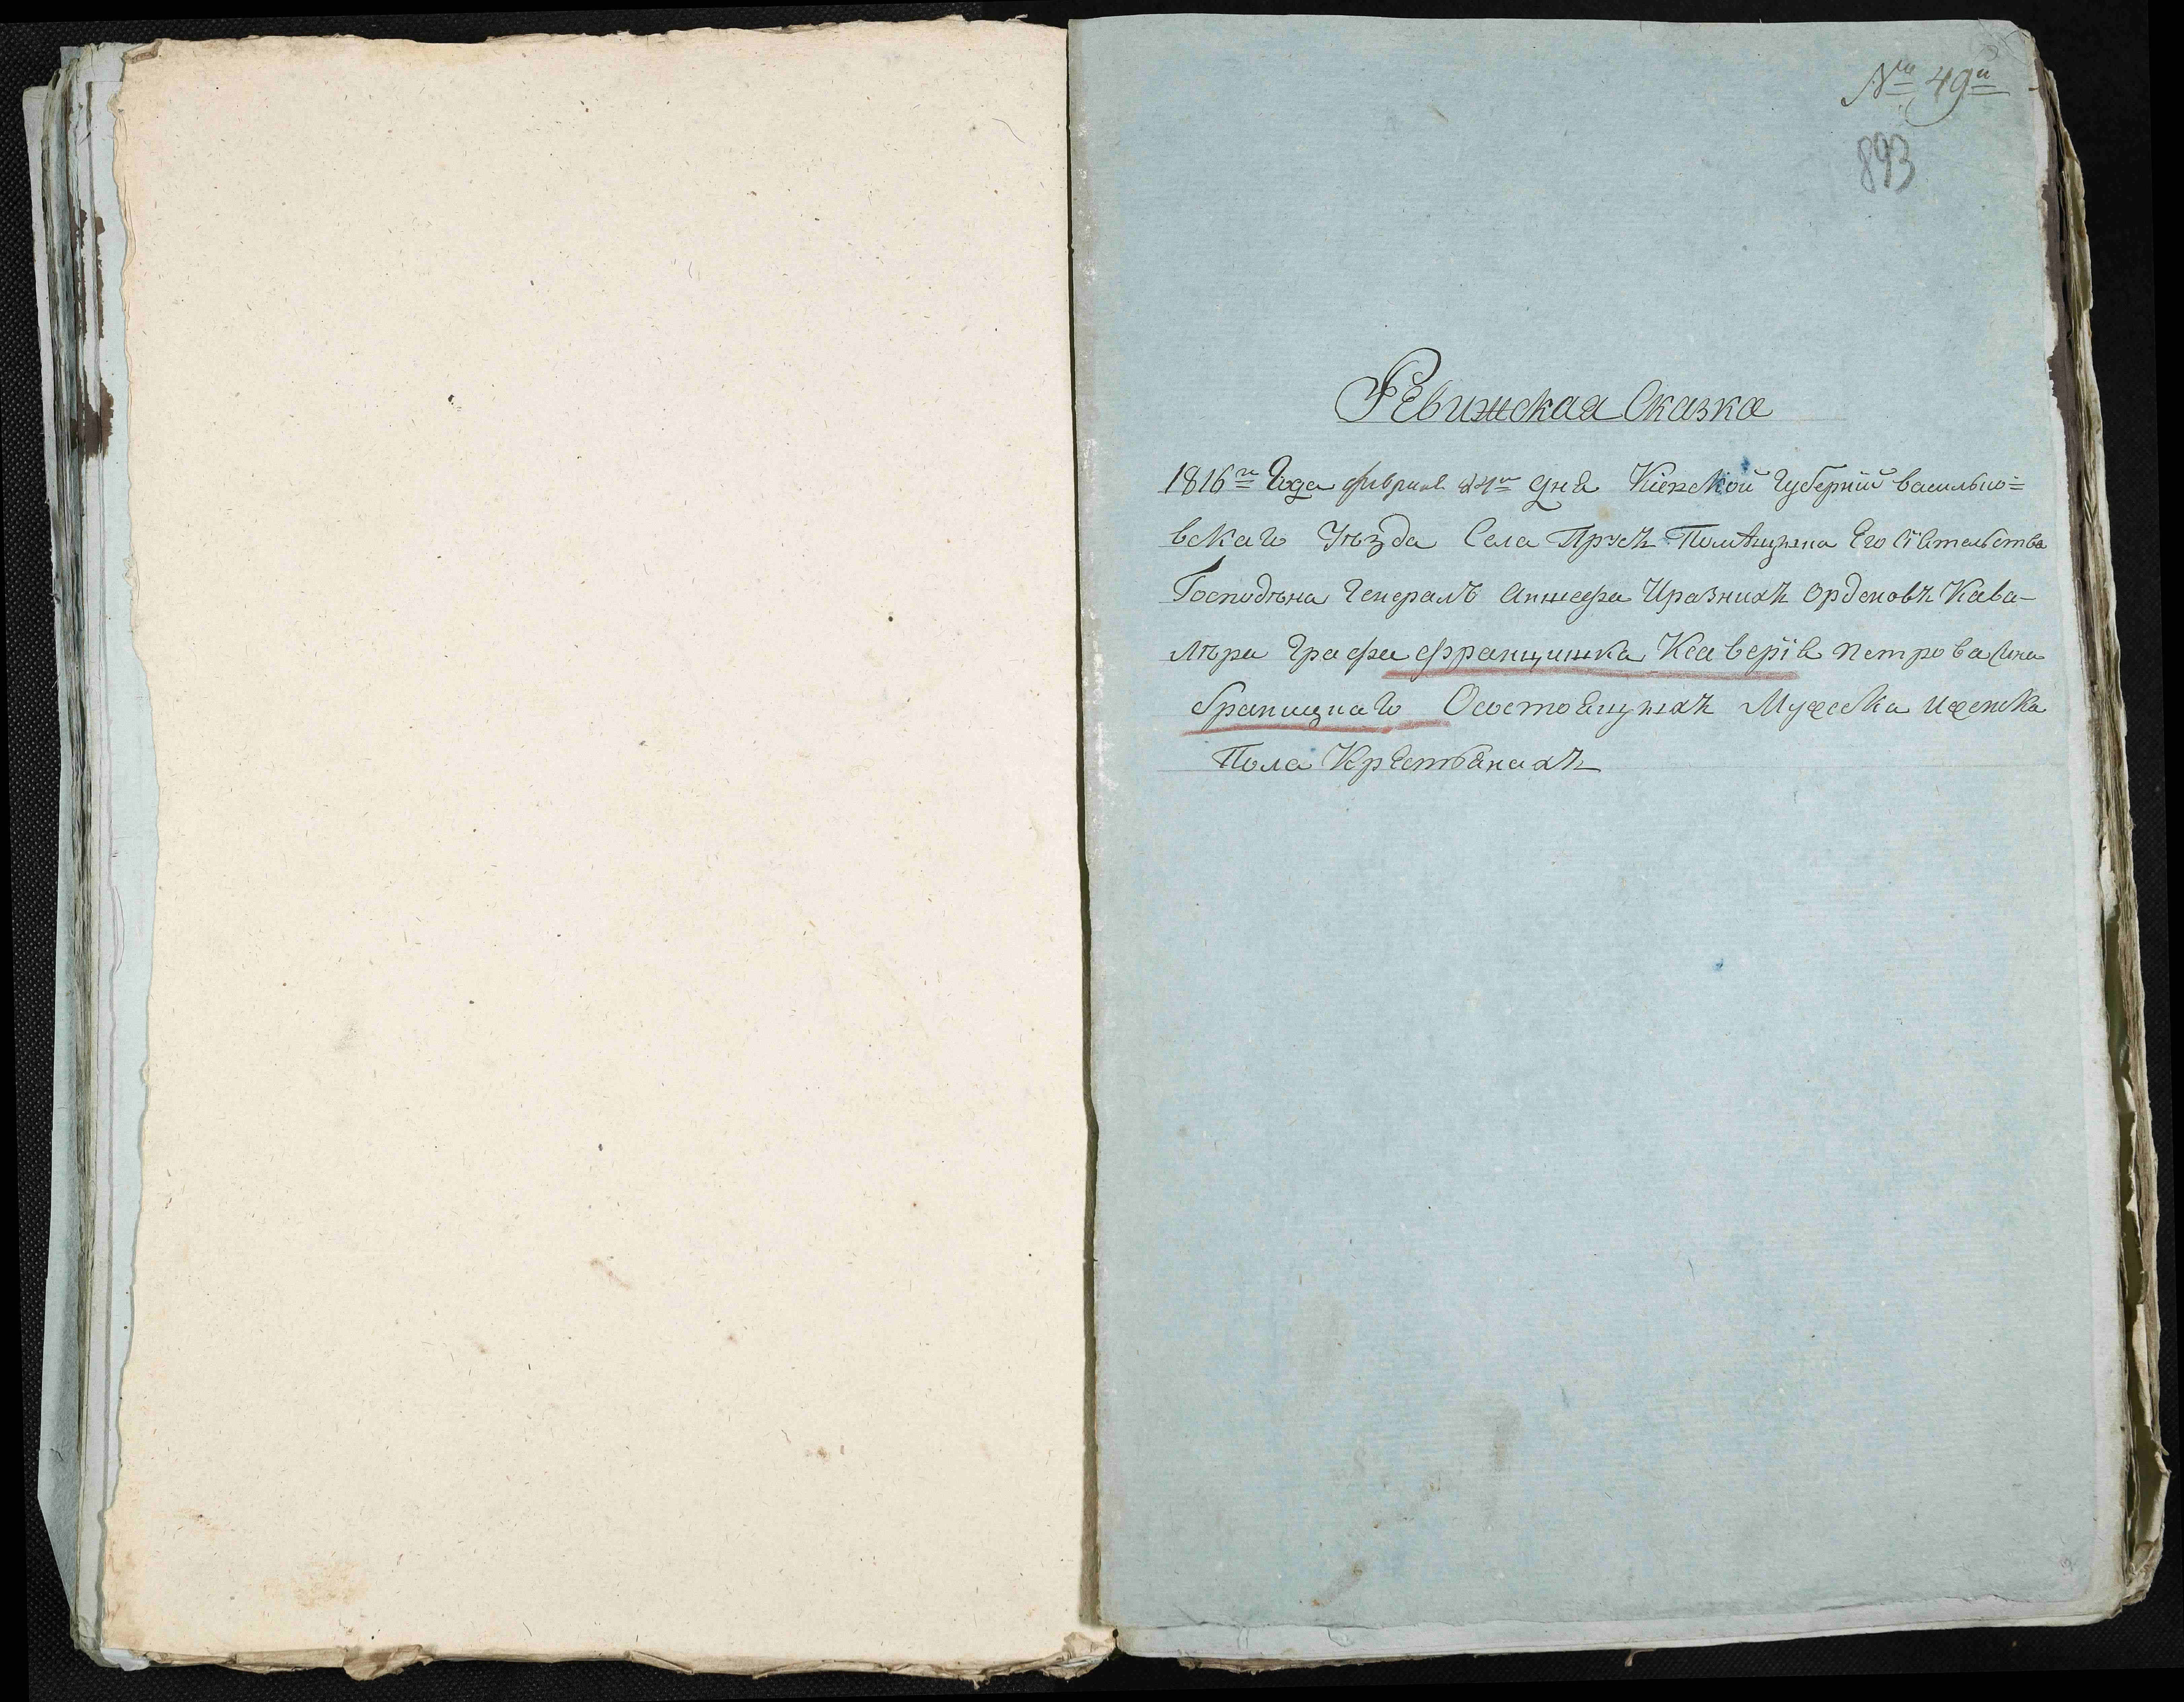 № 49й
893
Ревижская Сказка
1816го Года февраля дня Кіевской Губерніи василько=
вскаго Уѣзда Села Прусъ Помѣщика Его Сіятельства
Господина Генералъ Аншефа Иразныхъ орденовъ Кава-
лѣра Графа францишка Ксаверія петрова сына
браницкаго Осостоящихъ Мужеска иженска
Пола Крестьянахъ